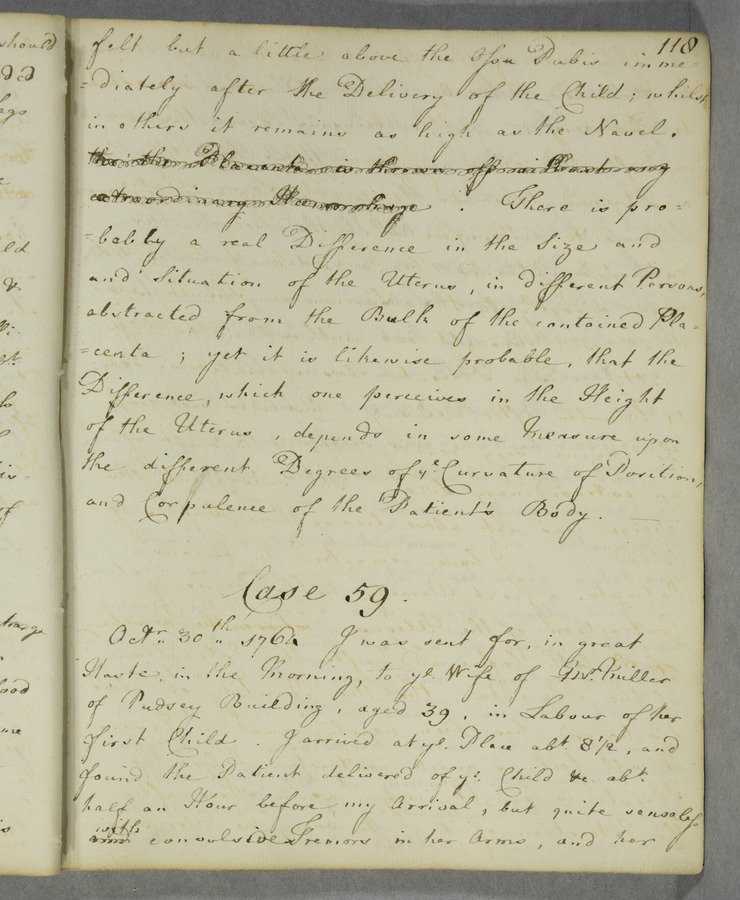 118
felt but a little above the Ossa Pubis imme
=diately after the Delivery of the Child; whilst
in others it remains as high as the Navel.
tho' the Placenta is thrown off without any
extraordinary Hæmorrhage. There is pro=
=babby a real Difference in the Size and
and Situation of the Uterus, in different Persons,
abstracted from the Bulk of the contained Pla=
=centa; yet it is likewise probable, that the
Difference, which one perceives in the Height
of the Uterus, depends in some Measure upon
the different Degrees of ye Curvature of Position,
and Corpulence of the Patient's Body. —
Case 59.
Octr. 30th. I was sent for, in great
Haste, in the Morning, to ye. Wife of Miller
of Pudsey Building, aged 39, in Labour of her
first Child. I arrived at ye. Place abt. 8½, and
found the Patient delivered of ye. Child abt.
half an Hour before my Arrival, but quite senseless
with
convulsive Tremors in her Arms, and her
should